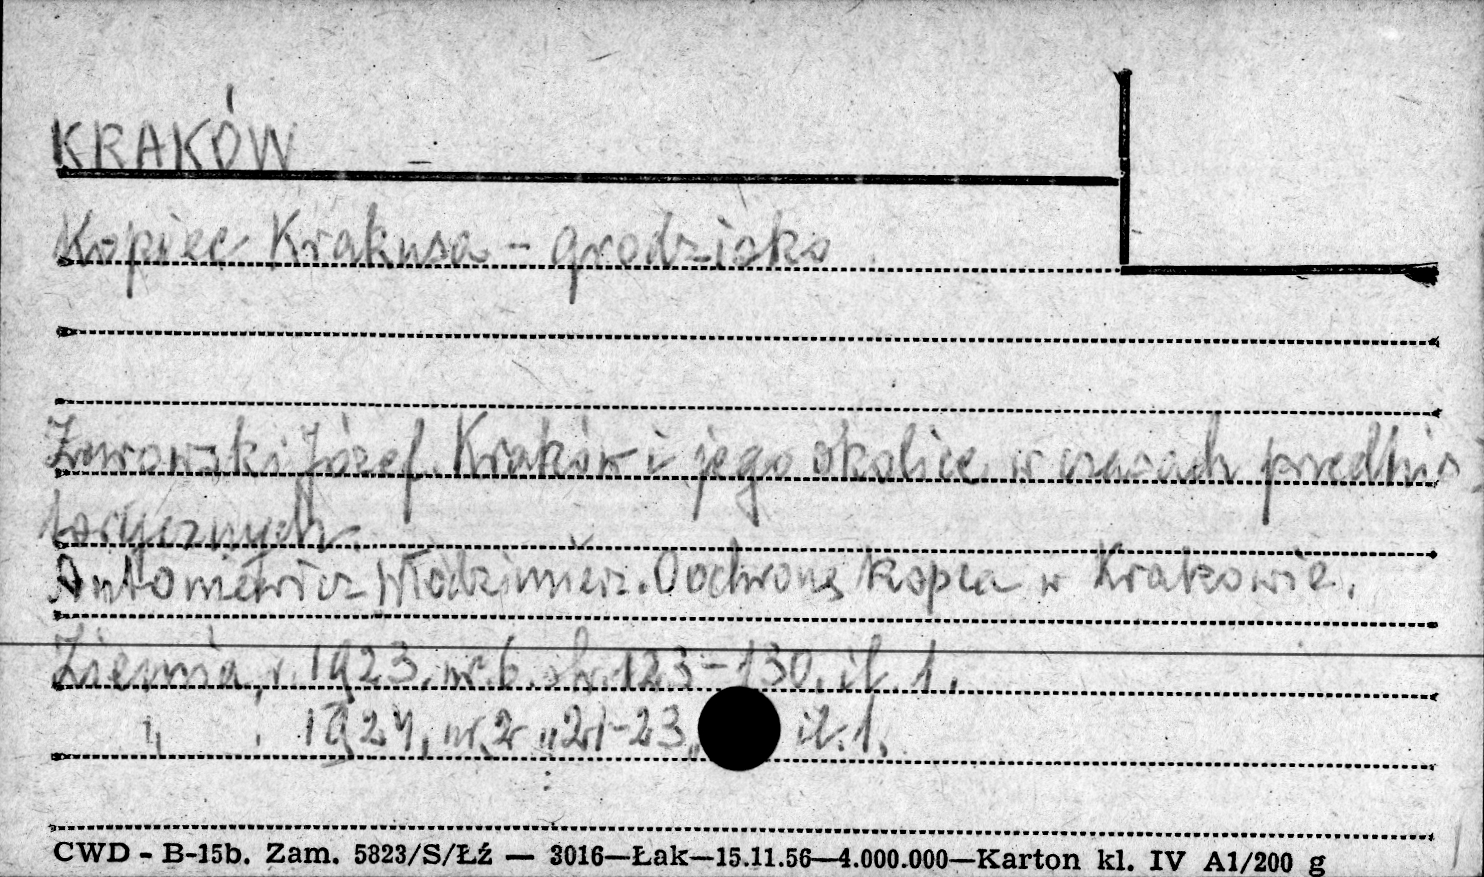 KRAKÓW
Kopiec Krakusa - grodzisko
Żurowski Józef. Kraków i jego okolice w czasach przedhis
torycznych.
Antoniewicz Włodzimierz. O ochronę kopca w Krakowie.
Ziemia, r. 1923, nr. 6. str. 123-130, il. 1.
" , 1924, nr. 2 " 21-23, il. 1.
CWD - B-15b. Zam. 5823/S/Łź — 3016—Łak—15.11.56—4.000.000—Karton kl. IV A1/200 g